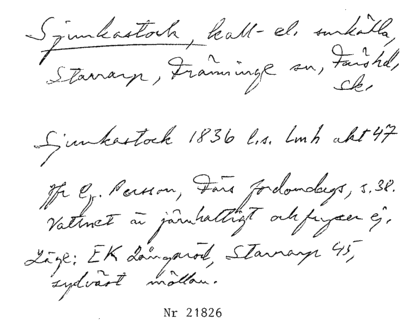 Sjunkastock, kall- el. surkälla,
Starrarp, Tranninge sn, Färs hd,
Sk.
Sjunkastock 1836 l.s. Lmh akt 47
Jfr E. Persson, Färs fordomdags, s. 38.
Vattnet är järnhaltigt och fryser ej.
Läge: EK Långaröd, Starrarp 45,
sydväst möllan.
Nr 21826